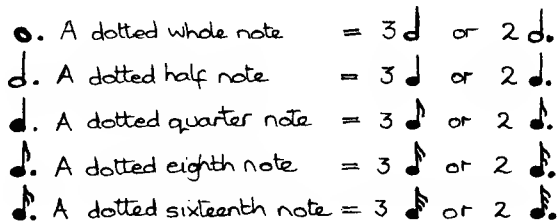 A dotted whole note = 3 or 2
A dotted half note = 3 or 2
A dotted quarter note = 3 or 2
A dotted eighth note = 3 or 2
A dotted sixteenth note = 3 or 2